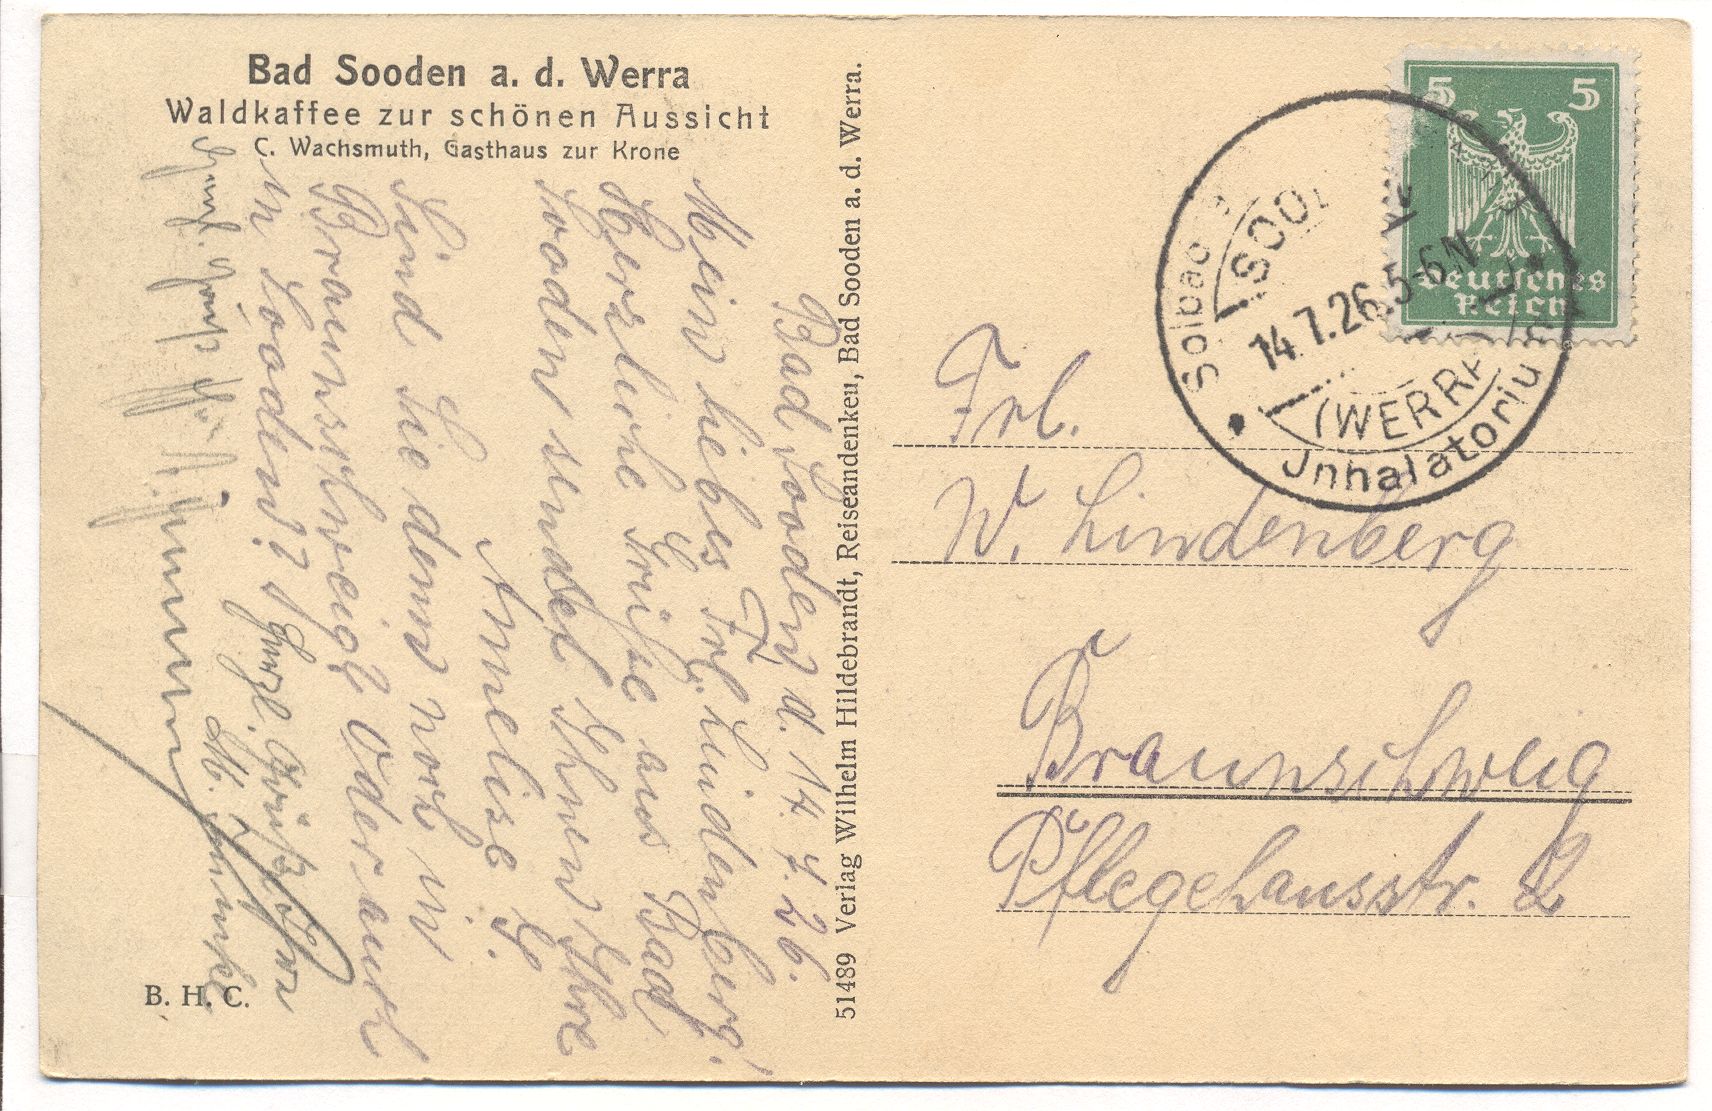 Bad Sooden a. d. Werra
Waldkaffee zur schönen Aussicht
C. Wachsmuth, Gasthaus zur Krone
Bad Sooden d. 14.7.26.
Mein liebes Frl. Lindenberg!
Herzliche Grüße aus Bad
Sooden sendet Ihnen Ihre
Annelise G.
Sind Sie denn noch in
Braunschweig oder auch
in Sooden?
Herzl. Grüße
M.
B. H. C.
51489 Verlag Wilhelm Hildebrandt, Reiseandenken, Bad Sooden a. d. Werra.
5 5
Deutsches
Reich
Solbad
SOO
14.7.26.5-6N
(WERRA)
Jnhalatoriu
Frl.
W. Lindenberg
Braunschweig
Pflegehausstr. 2